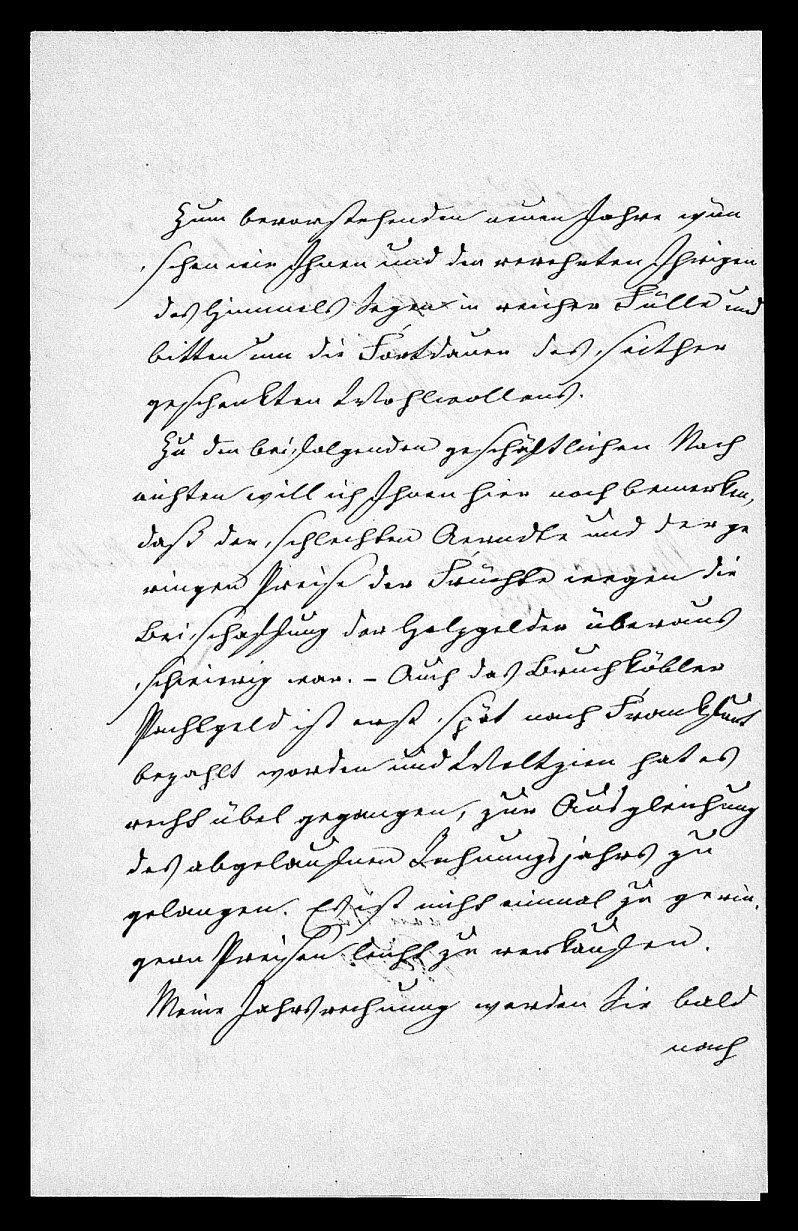 Zum bevorstehenden neuen Jahre wün
schen wir Ihnen und den verehrten Ihrigen
des Himmels Segen in reicher Fülle und
bitten um die Fortdauer des seither
geschenkten Wohlwollens.
Zu den beifolgenden geschäftlichen Nach
richten will ich Ihnen hier noch bemerken,
daß der schlechten Aerndte und der ge
ringen Preise der Früchte wegen die
Beischaffung der Holzgelder überaus
schwierig war. – Auch das Bruchköbler
Pachtgeld ist erst spät nach Frankfurt
bezahlt worden und Weltzien hat es
recht übel gegangen, zur Ausgleichung
des abgelaufnen Rechnungsjahrs zu
gelangen. Es ist nicht einmal zu gerin
gern Preisen leicht zu verkaufen.
Meine Jahrsrechnung werden Sie bald
nach